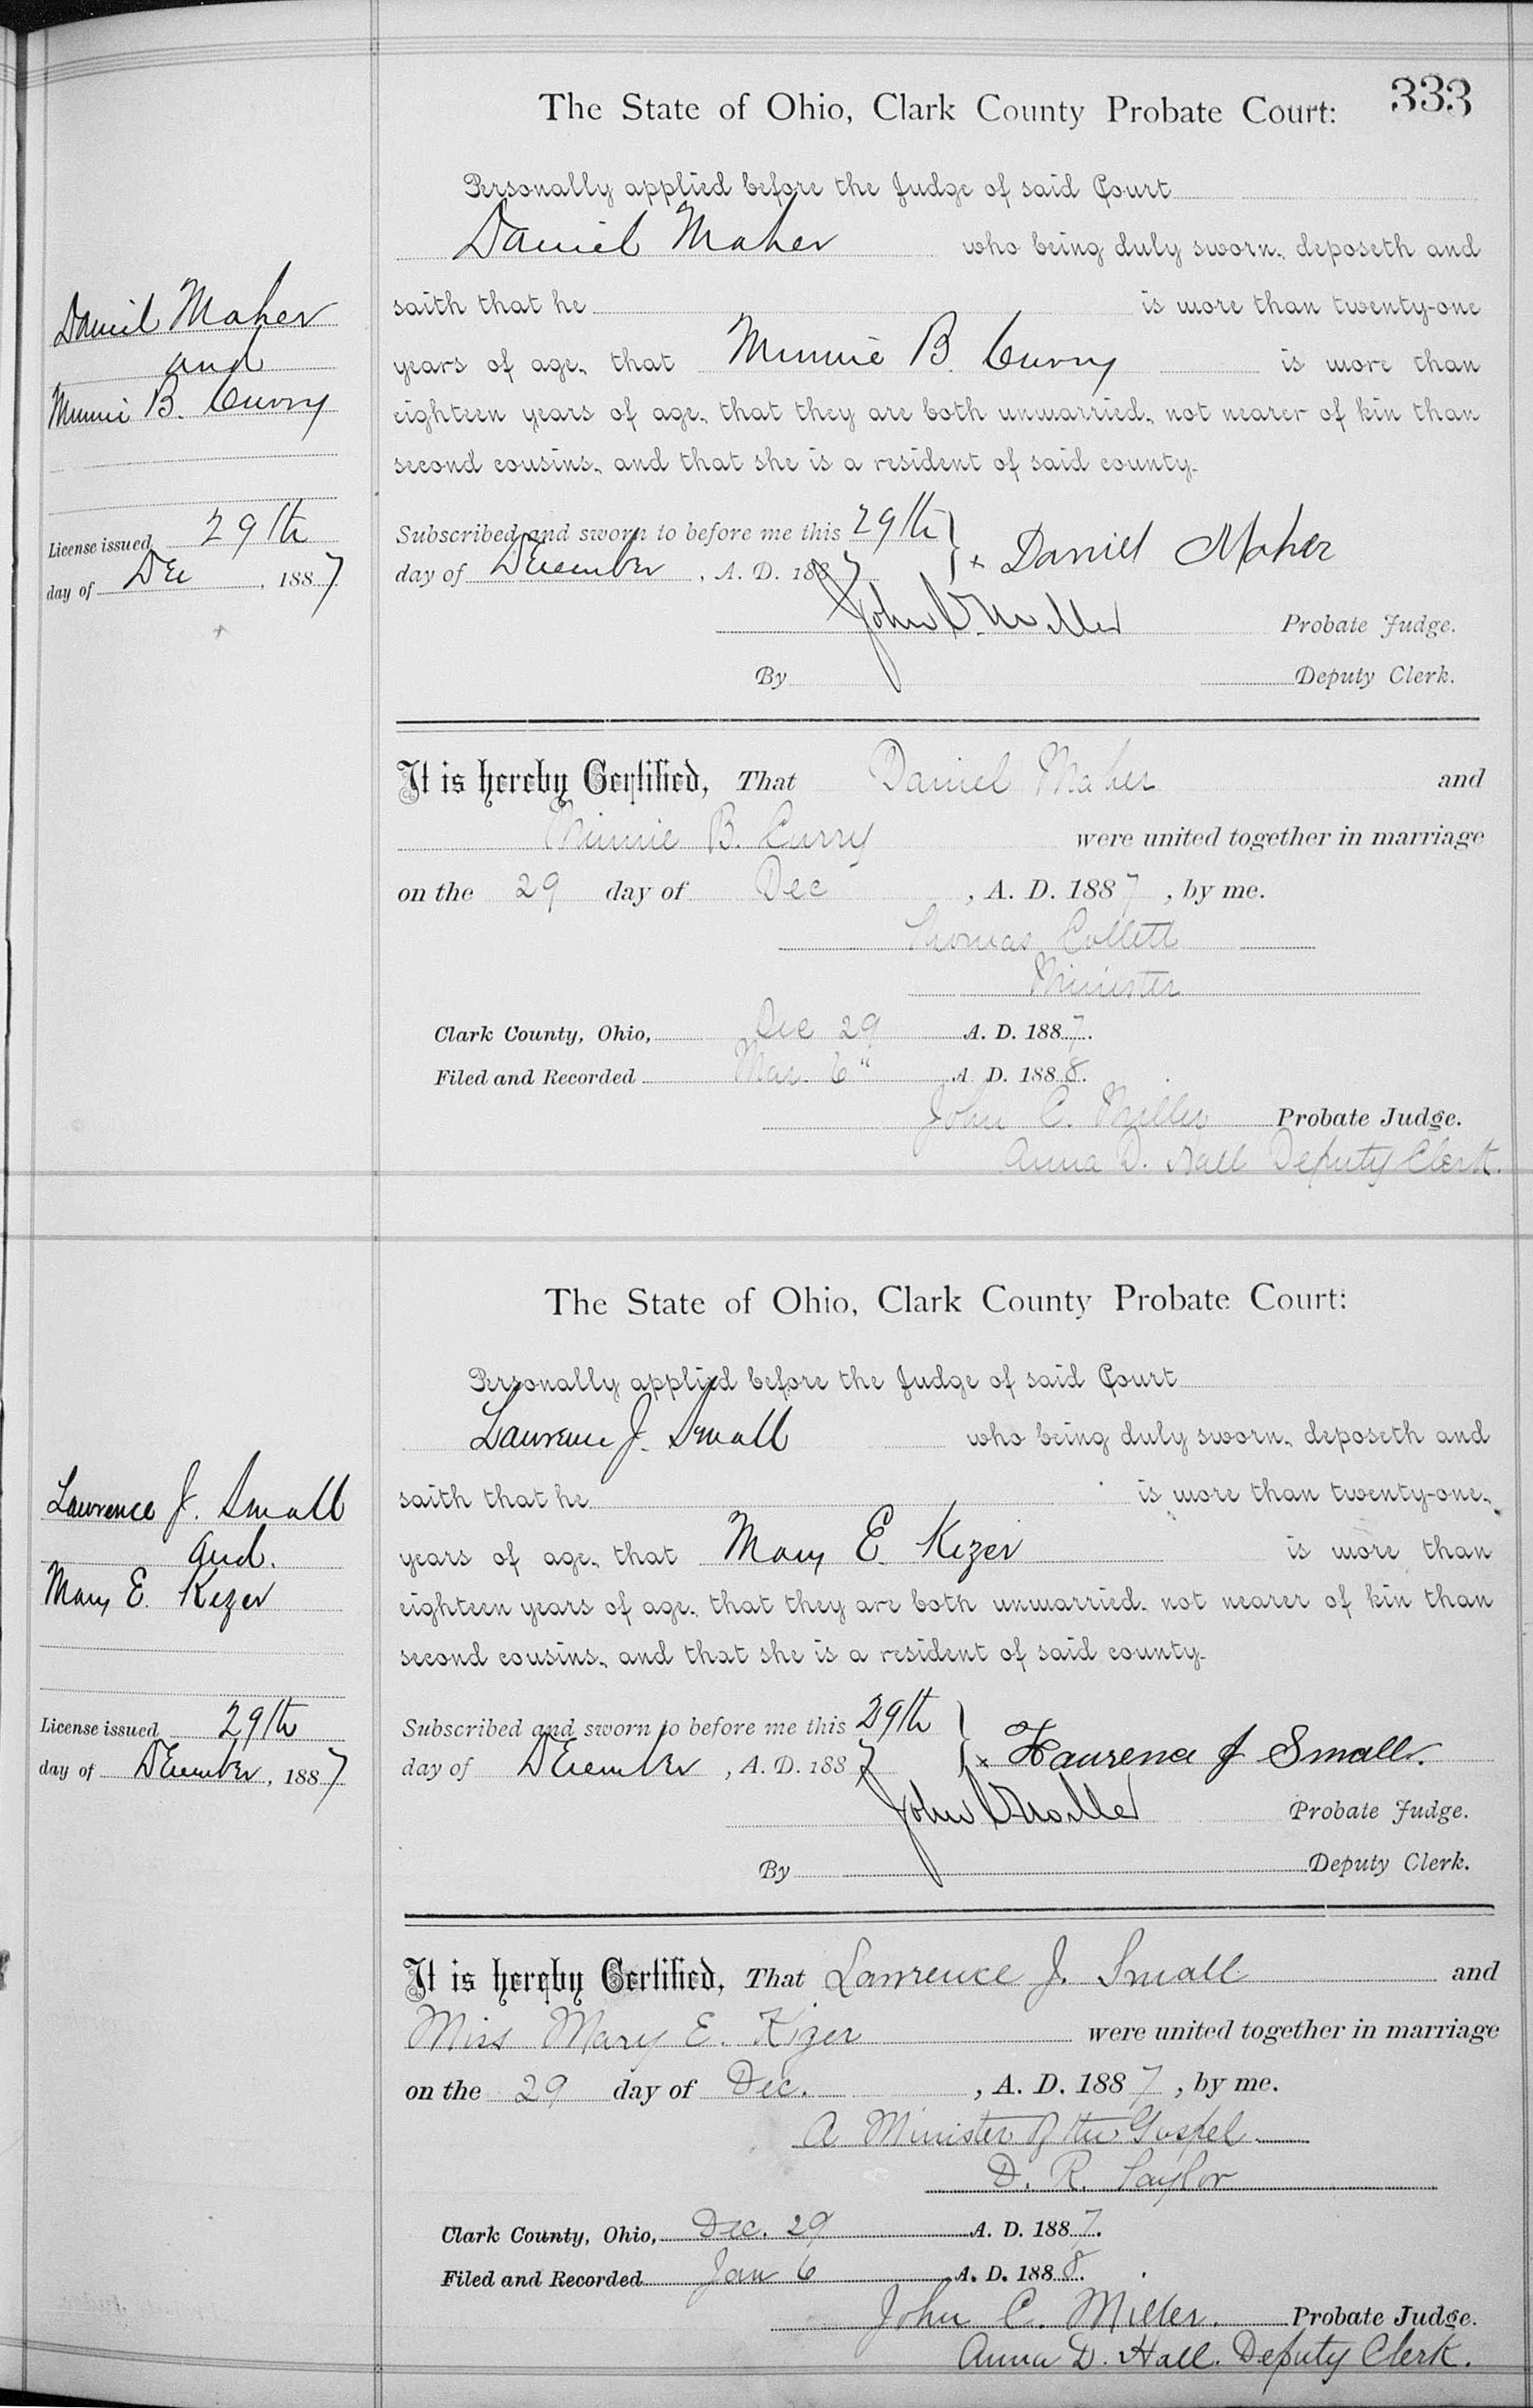 333
The State of Ohio, Clark County Probate Court:
Personally applied before the Judge of said Court
Daniel Maher who being duly sworn, deposeth and
saith that he is more than twenty-one
years of age, that Minnie B. Curry is more than
eighteen years of age, that they are both unmarried, not nearer of kin than
second cousins, and that she is a resident of said county.
Daniel Maher
and
Minnie B. Curry
License issued 29th
day of Dec, 1887
Subscribed and sworn to before me this 29th
day of December, A. D. 1887 } x Daniel Maher
John C. Miller Probate Judge.
By Deputy Clerk.
It is hereby Certified, That Daniel Maher and
Minnie B. Curry were united together in marriage
on the 29 day of Dec, A. D. 1887, by me.
Thomas Collett
Minister
Clark County, Ohio, Dec 29 A. D. 1887.
Filed and Recorded Mar. 6" A D. 1888.
John C. Miller Probate Judge.
Anna D. Hall Deputy Clerk.
The State of Ohio, Clark County Probate Court:
Personally applied before the Judge of said Court
Laurence J. Small who being duly sworn, deposeth and
saith that he is more than twenty-one,
years of age, that Mary E. Kizer is more than
eighteen years of age, that they are both unmarried, not nearer of kin than
second cousins, and that she is a resident of said county.
Lawrence J. Small
and.
Mary E. Kizer
License issued 29th
day of December, 1887
Subscribed and sworn to before me this 29th
day of December, A. D. 1887 } x Laurence J Small.
John C Miller Probate Judge.
By Deputy Clerk.
It is hereby Certified, That Lawrence J. Small and
Miss Mary E. Kizer were united together in marriage
on the 29 day of Dec., A. D. 1887, by me.
A Minister of the Gospel.
D. R. Taylor
Clark County, Ohio, Dec. 29 A. D. 1887.
Filed and Recorded Jan 6 A. D. 1888.
John C. Miller. Probate Judge.
Anna D. Hall. Deputy Clerk.